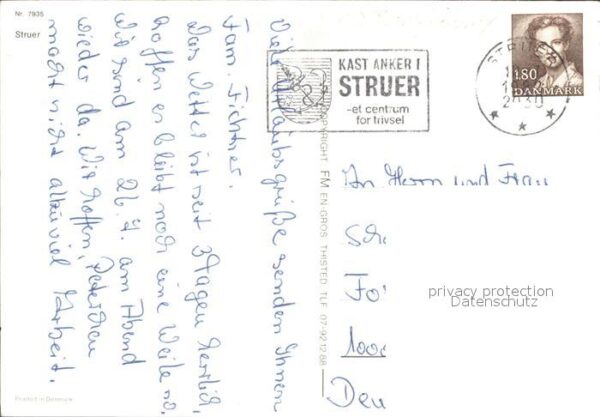 Nr. 7935
Struer
Viele Urlaubsgrüße senden Ihnen
Fam. Fichtner.
Das Wetter ist seit 3 Tagen herrlich,
hoffen es bleibt noch eine Weile so.
Wir sind am 26. 7. am Abend
wieder da. Wir hoffen, Peterchen
macht nicht allzuviel Arbeit.
Printed in Denmark
COPYRIGHT FM EN GROS THISTED TLF 07-921288
KAST ANKER I
STRUER
-et centrum
for trivsel
STRUER
2030
180
DANMARK
An Herrn und Frau
Sch
Fo
100
Deu
privacy protection
Datenschutz